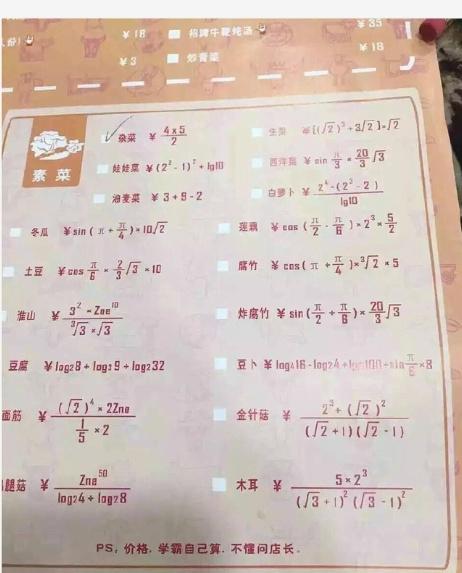 人份) ¥18 招牌牛鞭炖汤 ¥35
¥3 炒青菜 ¥18
素菜
杂菜 ¥ 4×5/2
生菜 ¥[(√2)³+3√2]×√2
娃娃菜 ¥(2²-1)²+lg10
西洋菜 ¥sin π/3 × 20/3 √3
油麦菜 ¥3+9-2
白萝卜 ¥ 2⁴-(2²-2)/lg10
冬瓜 ¥sin(π+π/4)×10√2
莲藕 ¥cos(π/2-π/6)×2³×5/2
土豆 ¥cos π/6 × 2/3 √3 ×10
腐竹 ¥cos(π+π/4)׳√2×5
淮山 ¥ 3²-Zne¹⁰/∛3×√3
炸腐竹 ¥sin(π/2+π/6)×20/3 √3
豆腐 ¥log28+log39+log232
豆卜 ¥log416-log24+lg100+sin π/6 ×8
面筋 ¥ (√2)⁴×2Zne/1/5×2
金针菇 ¥ 2³+(√2)²/(√2+1)(√2-1)
腿菇 ¥ Zne⁵⁰/log24+log28
木耳 ¥ 5×2³/(√3+1)²(√3-1)²
PS, 价格, 学霸自己算, 不懂问店长.